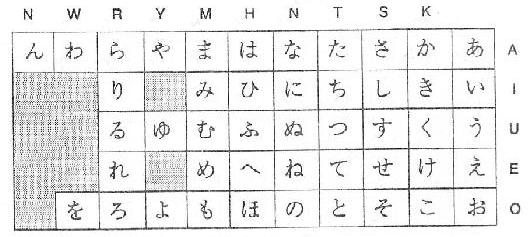 N W R Y M H N T S K
ん わ ら や ま は な た さ か あ A
り み ひ に ち し き い I
る ゆ む ふ ぬ つ す く う U
れ め へ ね て せ け え E
を ろ よ も ほ の と そ こ お O